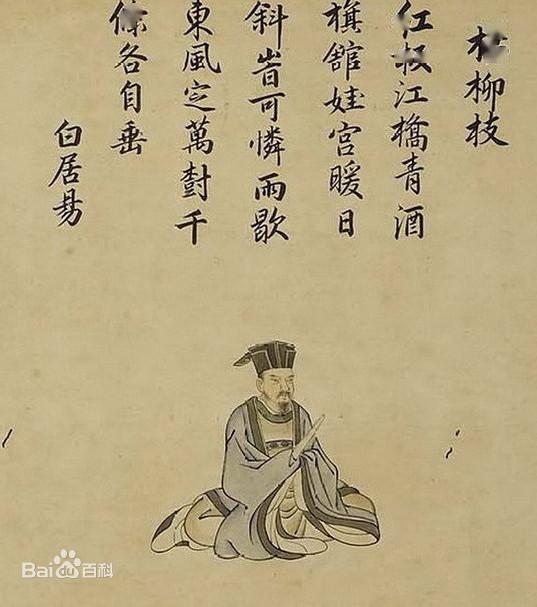 柳枝
江橋青酒
旗舘娃宮暖日
斜旹可憐雨歇
東風定萬樹千
條各自垂
白居易
Bai百科